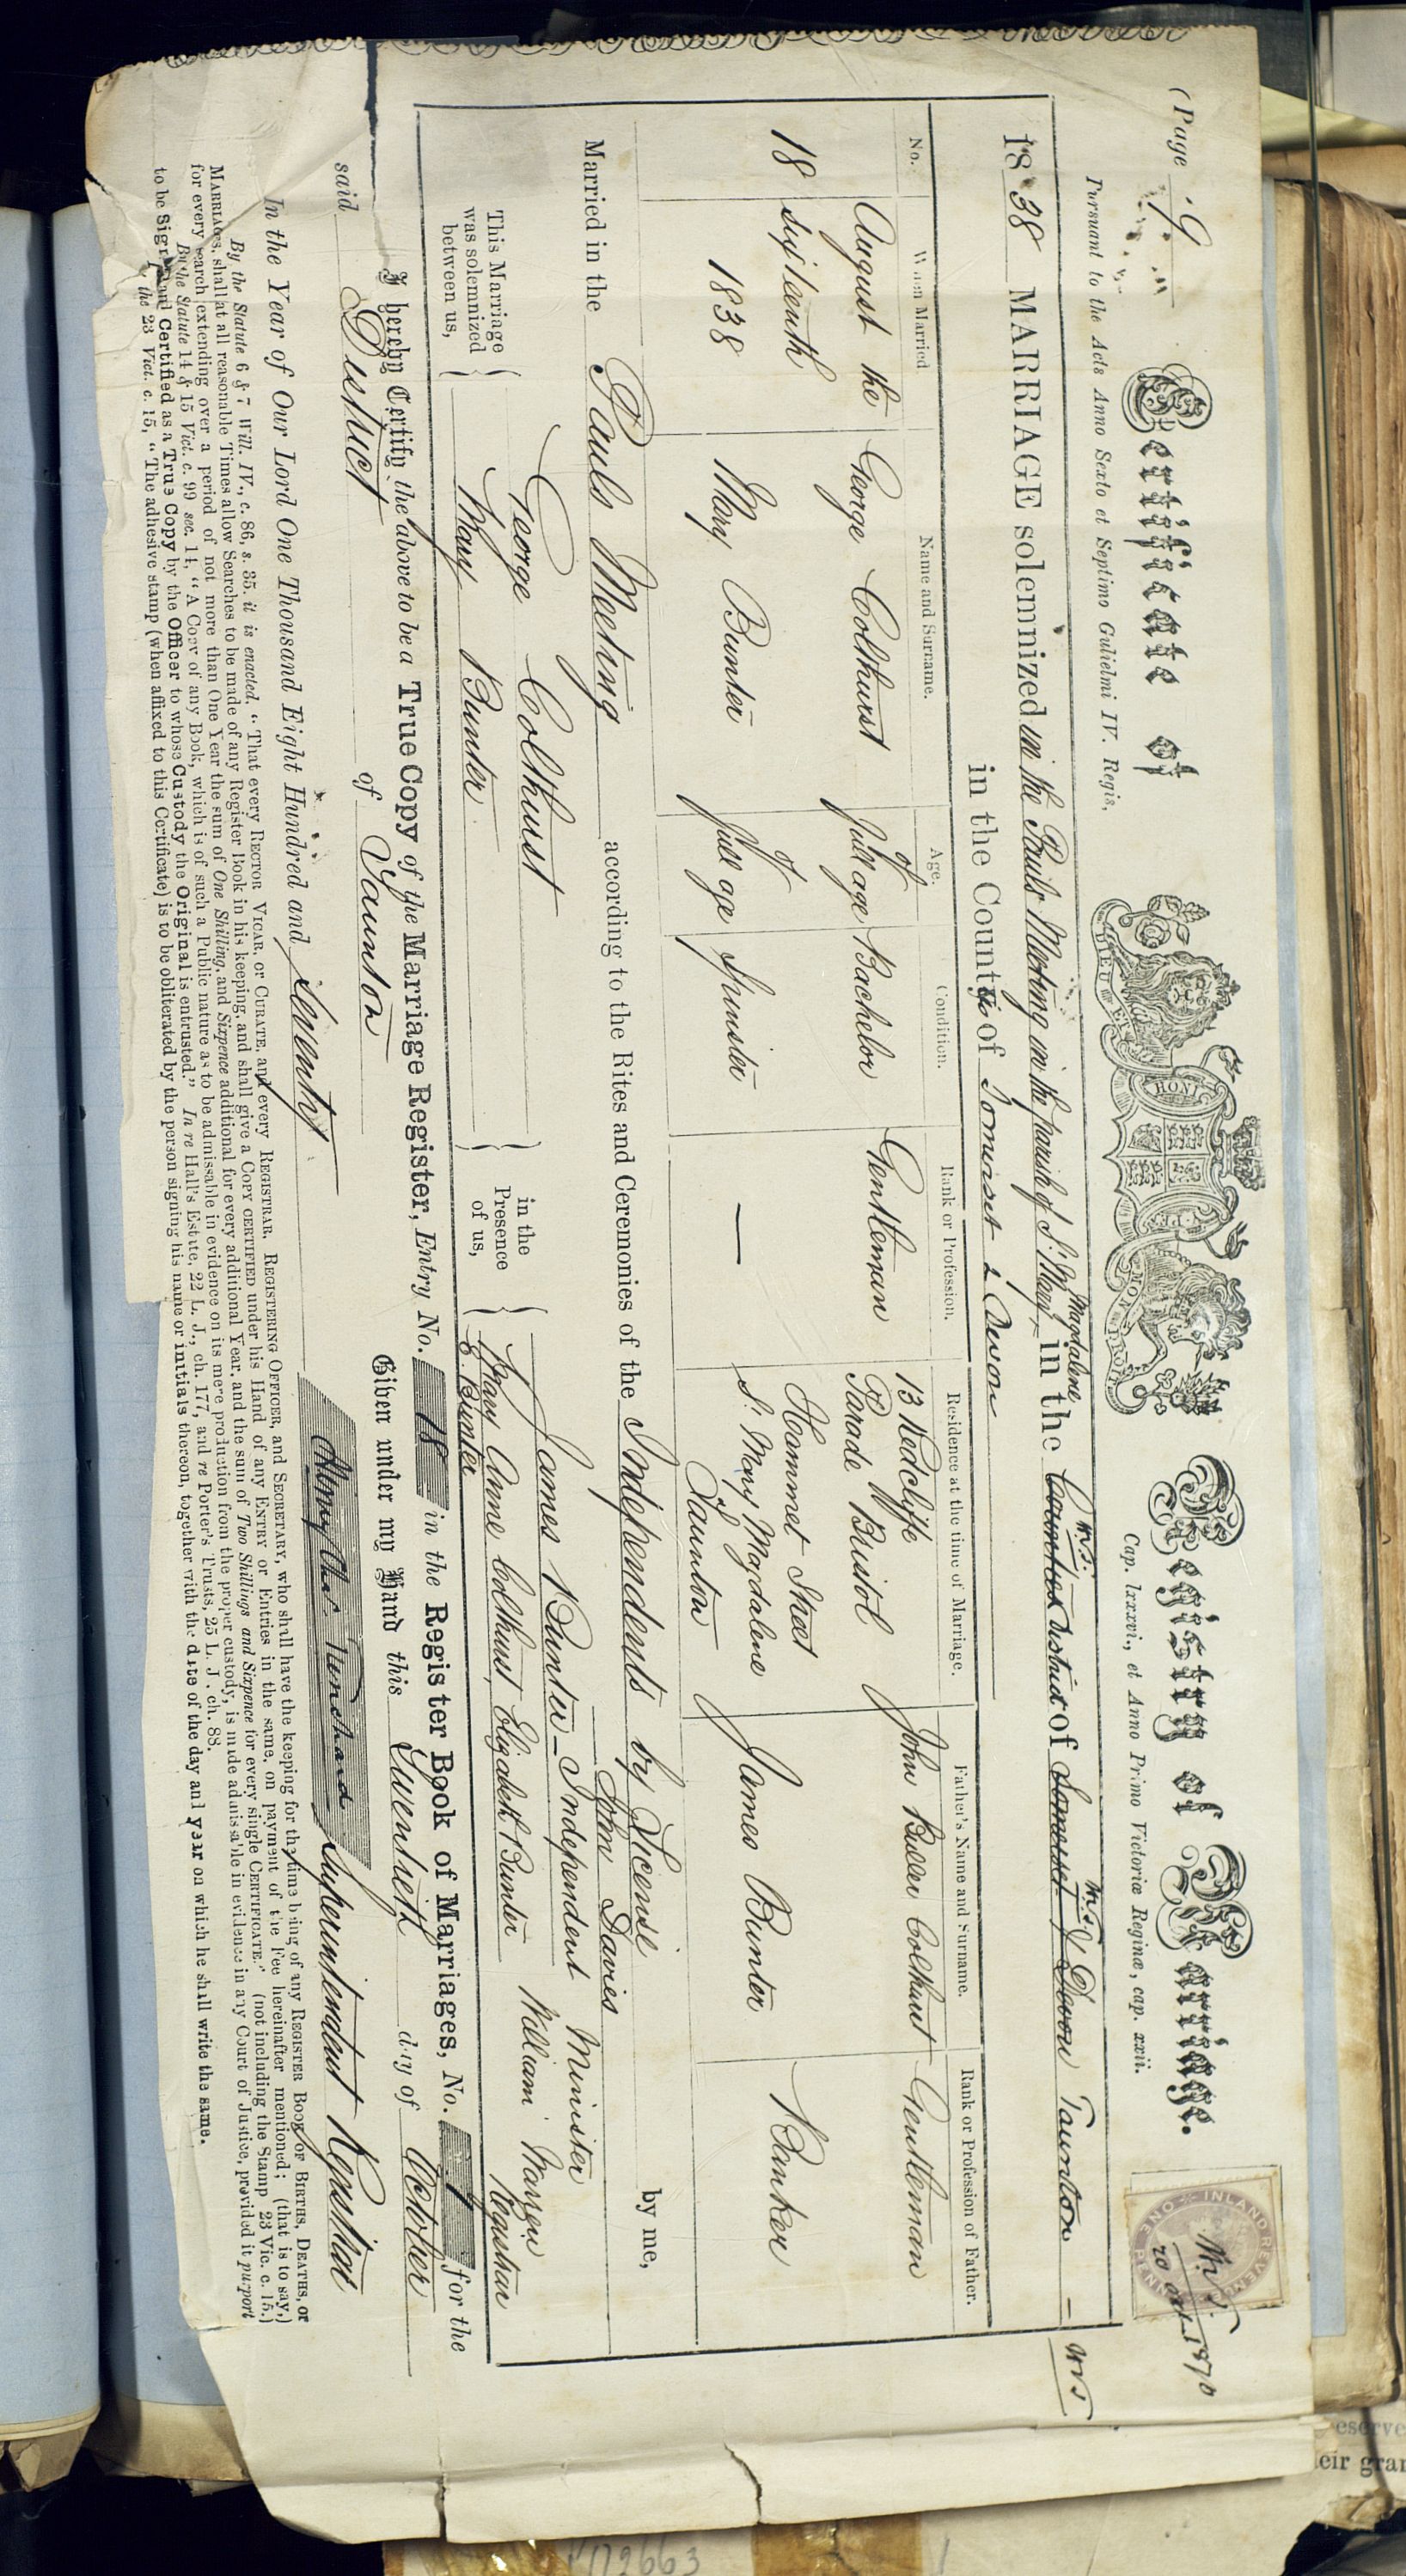 (Page 9
Certificate of Registry of Marriage.
Pursuant to the Acts Anno Sexto et Septimo Gulielmi IV. Regis, Cap. lxxxvi., et Anno Primo Victoriæ Reginæ, cap. xxii.
DIEU ET MON DROIT
HONI
INLAND REVENUE
ONE PENNY
20 Oct 1870
1838 MARRIAGE solemnized in the Pauls Meeting in the parish of St Mary Magdalene in the Counties District of Somerset & Devon Taunton
in the Counties of Somerset & Devon
No.
When Married
Name and Surname.
Age.
Condition.
Rank or Profession.
Residence at the time of Marriage.
Father's Name and Surname.
Rank or Profession of Father.
18
August the
sixteenth
1838
George Colthurst
of
full age
Bachelor
Gentleman
13 Redcliffe
Parade W Bristol
John Buller Colthurst
Gentleman
Mary Bunter
of
full age
Spinster
—
Hammet Street
St Mary Magdalene
Taunton
James Bunter
Banker
Married in the Pauls Meeting according to the Rites and Ceremonies of the Independents by License by me,
John Davies
Independent Minister
This Marriage
was solemnized
between us,
George Colthurst
Mary Bunter
in the
Presence
of us,
James Bunter
Mary Anne Colthurst, Elizabeth Bunter
E. Bunter
William
Registrar
I hereby Certify the above to be a True Copy of the Marriage Register, Entry No. 18 in the Register Book of Marriages, No. 1 for the
said District of Taunton Given under my Hand this Twentieth day of October
In the Year of Our Lord One Thousand Eight Hundred and Seventy
Superintendent Registrar
By the Statute 6 & 7 Will. IV., c. 86, s. 35. it is enacted. "That every RECTOR VICAR, or CURATE, and every REGISTRAR, REGISTERING OFFICER, and SECRETARY, who shall have the keeping for the time being of any REGISTER BOOK OF BIRTHS, DEATHS, or
MARRIAGES, shall at all reasonable Times allow Searches to be made of any Register Book in his keeping, and shall give a COPY CERTIFIED under his Hand of any ENTRY or Entries in the same, on payment of the Fee hereinafter mentioned; (that is to say,)
for every search extending over a period of not more than One Year the sum of One Shilling, and Sixpence additional for every additional Year, and the sum of Two Shillings and Sixpence for every single CERTIFICATE." (not including the Stamp 23 Vic. c. 15.)
By the Statute 14 & 15 Vict. c. 99 sec. 14, "A Copy of any Book, which is of such a Public nature as to be admissable in evidence on its mere production from the proper custody, is made admissable in evidence in any Court of Justice, provided it purport
to be Signed and Certified as a True Copy by the Officer to whose Custody the Original is entrusted." In re Hall's Estate, 22 L. J., ch. 177, and re Porter's Trusts, 25 L. J. ch. 88.
the 23 Vict. c. 15, "The adhesive stamp (when affixed to this Certificate) is to be obliterated by the person signing his name or initials thereon, together with the date of the day and year on which he shall write the same.